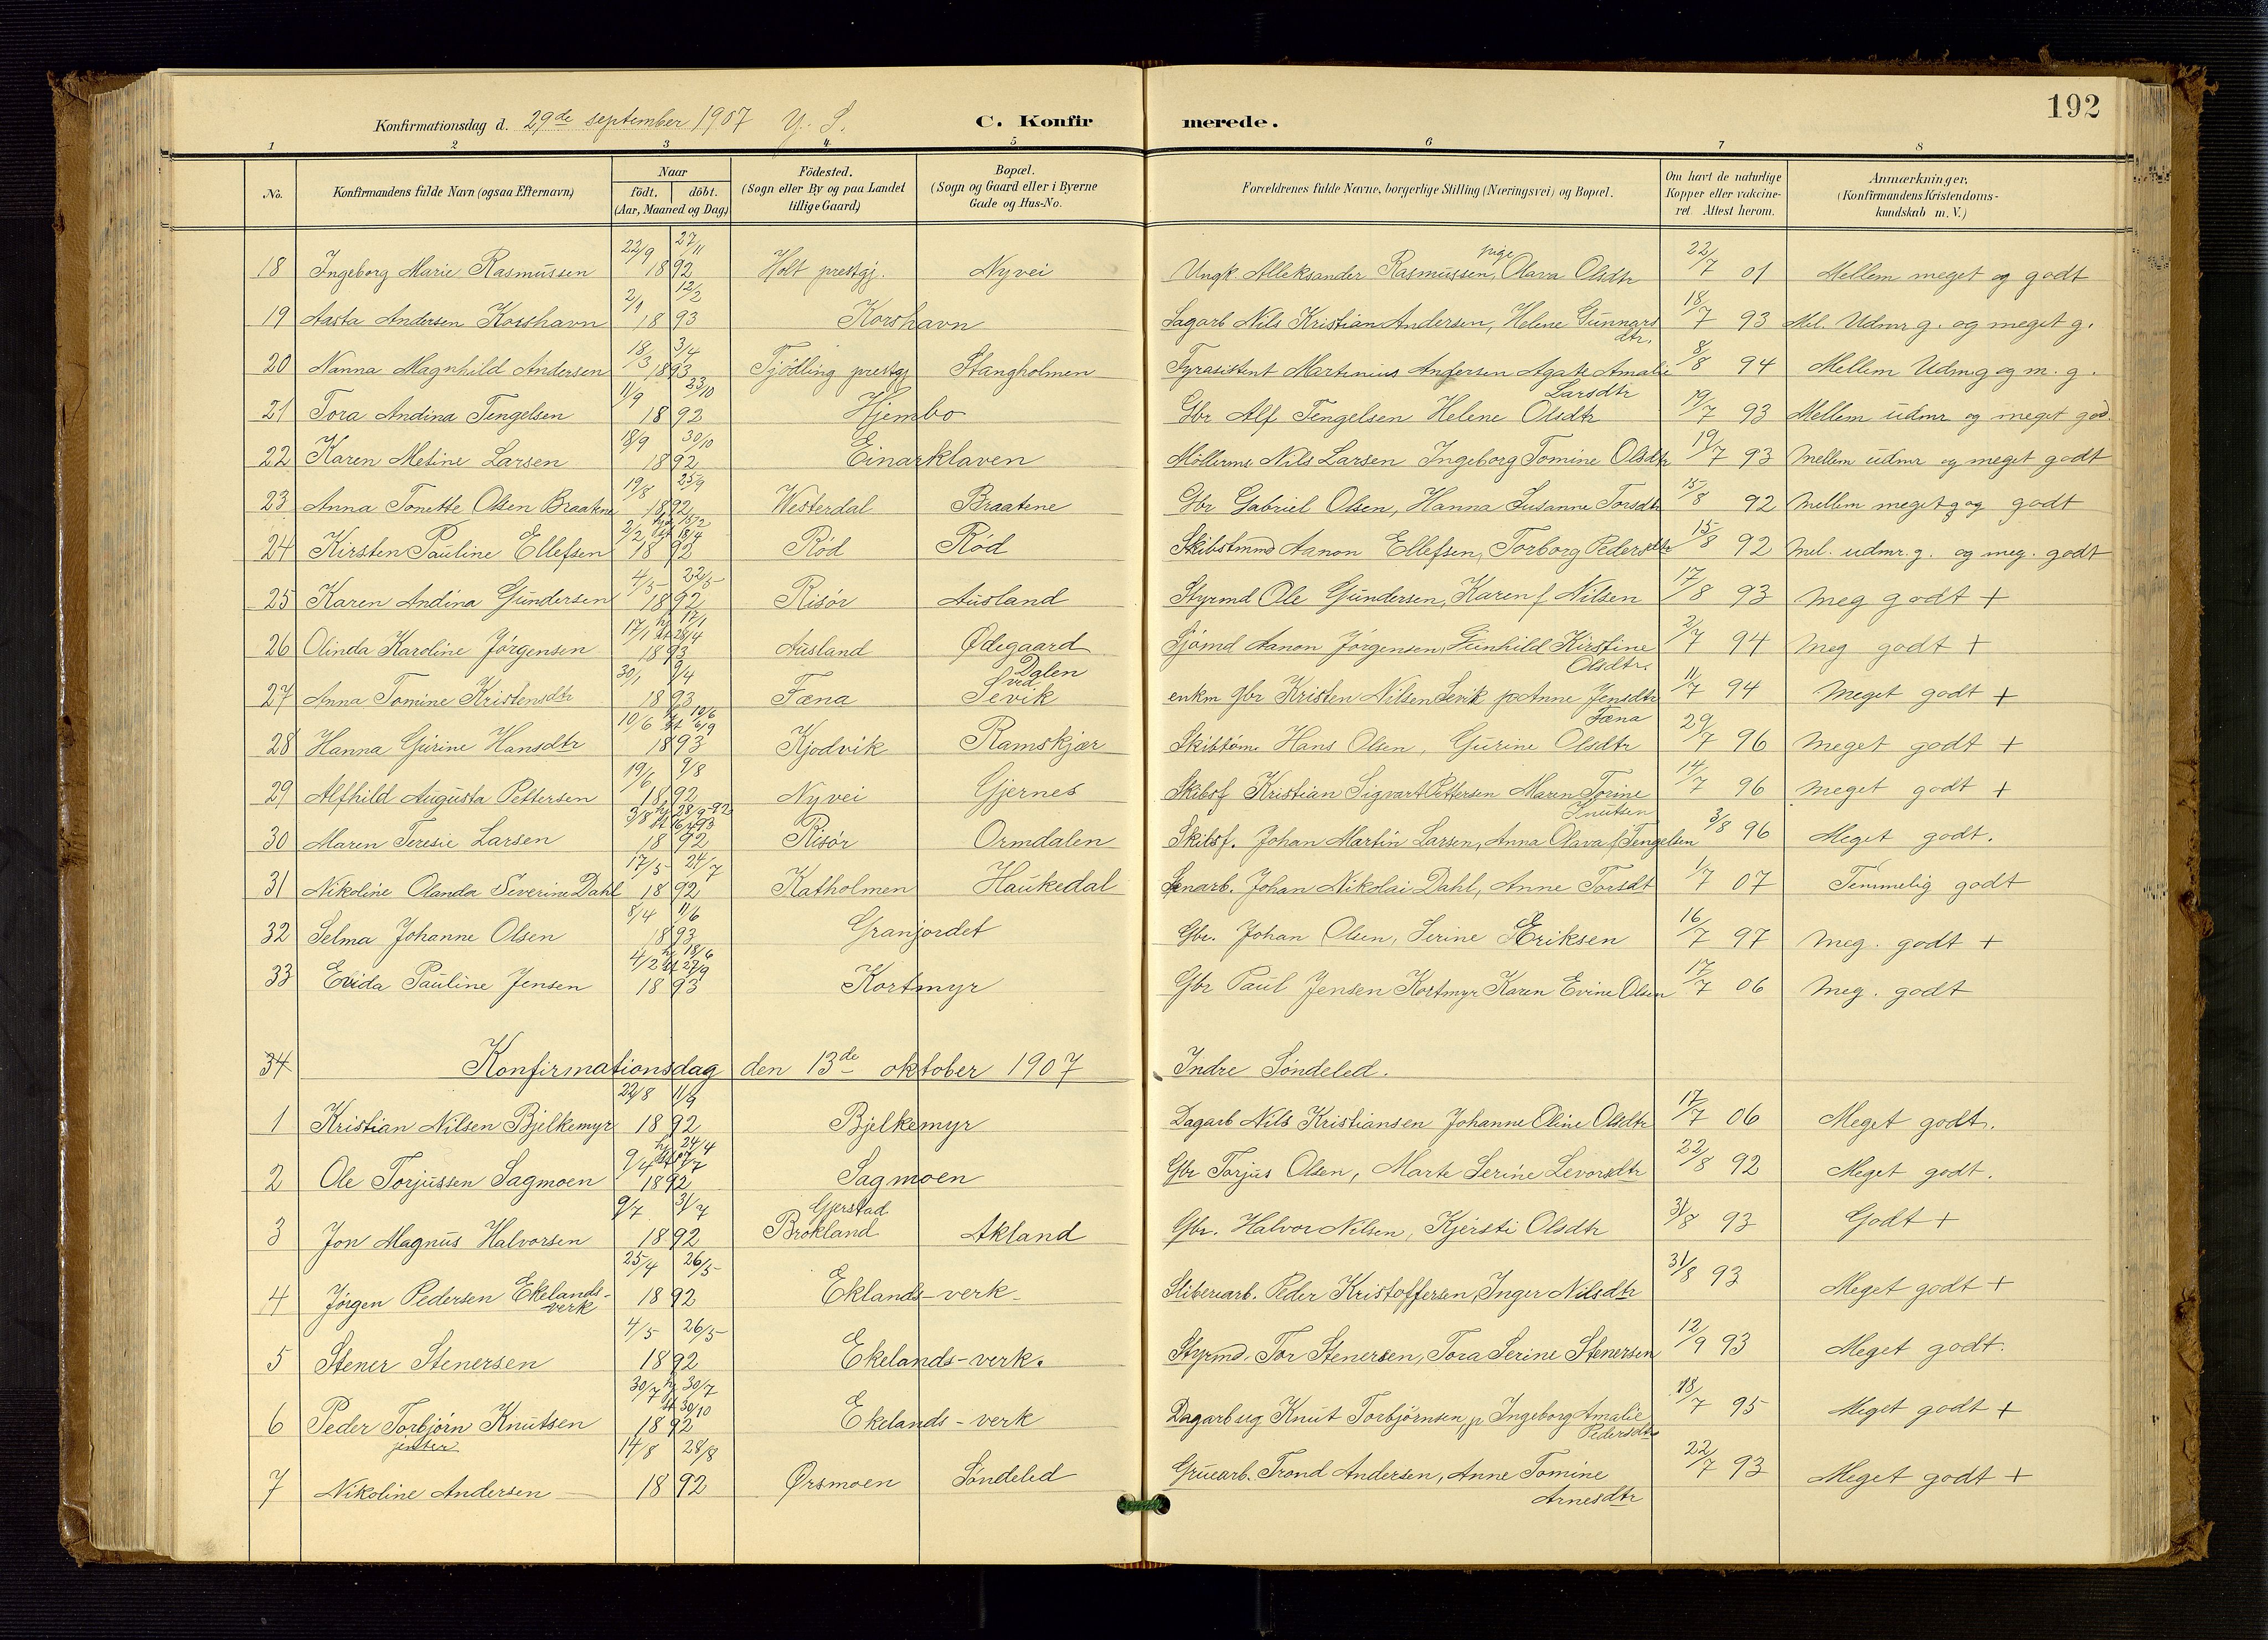 192
Konfirmationsdag d. 29de september 1907 Y. S. C. Konfirmerede.
1 2 3 4 5 6 7 8
No. Konfirmandens fulde Navn (ogsaa Efternavn) Naar födt. döbt. (Aar, Maaned og Dag) Födested. (Sogn eller By og paa Landet tillige Gaard) Bopæl. (Sogn og Gaard eller i Byerne Gade og Hus-No. Forældrenes fulde Navne, borgerlige Stilling (Næringsvei) og Bopæl. Om havt de naturlige Kopper eller vakcineret. Attest herom. Anmærkninger. (Konfirmandens Kristendomskundskab m. V.)
18 Ingeborg Marie Rasmussen 22/9 27/11 1892 Holt prestgj. Nyvei Ungk. Alleksander Rasmussen, pige Olava Olsdtr 22/7 01 Mellem meget og godt
19 Aasta Andersen Korshavn 2/1 12/2 1893 Korshavn Sagarb Nils Kristian Andersen, Helene Gunnarsdtr. 18/7 93 Mel. Udmr g. og meget g.
20 Nanna Magnhild Andersen 18/3 3/4 1893 Tjödling prestgj Stangholmen Fyrasistent Martinius Andersen Agate Amalie Larsdtr 8/8 94 Mellem Udmg og m. g.
21 Tora Andina Tengelsen 11/9 23/10 1892 Hjembo Gbr Alf Tengelsen Helene Olsdtr 19/7 93 Mellem udmr og meget god.
22 Karen Metine Larsen 18/9 30/10 1892 Einarklaven Möllerme Nils Larsen Ingeborg Tomine Olsdtr 19/7 93 Mellem udmr og meget godt
23 Anna Tonette Olsen Braatene 19/8 25/9 1892 Westerdal Braatene Gbr Gabriel Olsen, Hanna Susanne Torsdtr 15/8 92 Mellem meget g og godt
24 Kirsten Pauline Ellefsen 2/2 hj 15/2 st 18/4 1892 Röd Röd Skibstmmd Aanon Ellefsen, Torborg Pedersdtr 15/8 92 Mel. udmr. g. og meg. godt
25 Karen Andina Gundersen 4/5 22/5 1892 Risör Ausland Styrmd Ole Gundersen, Karen f Nilsen 17/8 93 Meg godt +
26 Olinda Karoline Jörgensen 17/1 hj 17/1 st 28/4 1893 Ausland Ødegaard Sjömd Aanon Jörgensen, Gunhild Kirstine Olsdtr. 2/7 94 Meg godt +
27 Anna Tomine Kristensdtr 30/1 9/4 1893 Fæna Dalen ved Sevik enkm gbr Kristen Nilsen Sevik p Anne Jensdtr Fæna 11/7 94 Meget godt +
28 Hanna Gurine Hansdtr 10/6 hj 10/6 1893 Kjodvik Ramskjær Skibstöm Hans Olsen, Gurine Olsdtr 29/7 96 Meget godt +
29 Alfhild Augusta Pettersen 19/6 9/8 1892 Nyvei Gjernes Skibsf Kristian Sigvart Pettersen Maren Torine Knutsen 14/7 96 Meget godt +
30 Maren Teresie Larsen 3/8 hj 28/9-92 1892 Risör Ormdalen Skibsf. Johan Martin Larsen, Anna Olava f Tengelsen 3/8 96 Meget godt.
31 Nikoline Olanda Severine Dahl 17/5 24/7 1892 Katholmen Haukedal Senarb. Johan Nikolai Dahl, Anne Torsdt 1/7 07 Temmelig godt
32 Selma Johanne Olsen 8/4 11/6 1893 Granjordet Gbr. Johan Olsen, Serine Eriksen 16/7 97 Meg. godt +
33 Evida Pauline Jensen 4/2 hj 18/6 st 27/9 1893 Kortmyr Gbr Paul Jensen Kortmyr Karen Evine Olsen 17/7 06 Meg. godt
34 Konfirmationsdag den 13de oktober 1907 Indre Söndeled.
1 Kristian Nilsen Bjelkemyr 22/8 11/9 1892 Bjelkemyr Dagarb Nils Kristiansen Johanne Oline Olsdtr 17/7 06 Meget godt.
2 Ole Torjussen Sagmoen 9/4 hj 24/4 1892 Sagmoen Gbr Torjus Olsen, Marte Serine Levorsdtr 22/8 92 Meget godt.
3 Jon Magnus Halvorsen 9/7 31/7 1892 Gjerstad Brokland Akland Gbr. Halvor Nilsen, Kjersti Olsdtr 31/8 93 Godt +
4 Jörgen Pedersen Ekelands-verk 25/4 26/5 1892 Eklands-verk Sliberiarb. Peder Kristoffersen, Inger Nilsdtr 31/8 93 Meget godt +
5 Stener Stenersen 4/5 26/5 1892 Ekelands-verk. Styrmd. Tor Stenersen, Tora Serine Stenersen 12/9 93 Meget godt.
6 Peder Torbjörn Knutsen 30/7 hj 30/7 st 30/10 1892 Ekelands-verk Dagarb ug Knut Torbjörnsen, p Ingeborg Amalie Pedersdtr 18/7 95 Meget godt +
jenter
7 Nikoline Andersen 14/8 28/8 1892 Ørsmoen Söndeled Gruearb. Trond Andersen, Anne Tomine Arnesdtr 22/7 93 Meget godt +